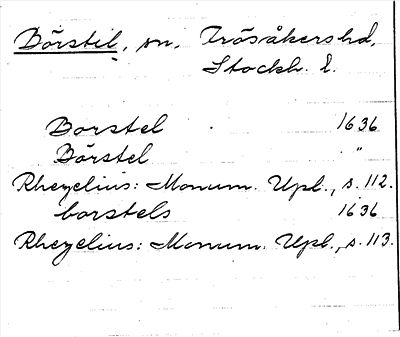 Börstil, sn. Frösåkers hd,
Stockh. l.
Borstel 1636
Börstel "
Rhezelius: Monum. Upl., s. 112.
borstels 1636
Rhezelius: Monum. Upl., s. 113.